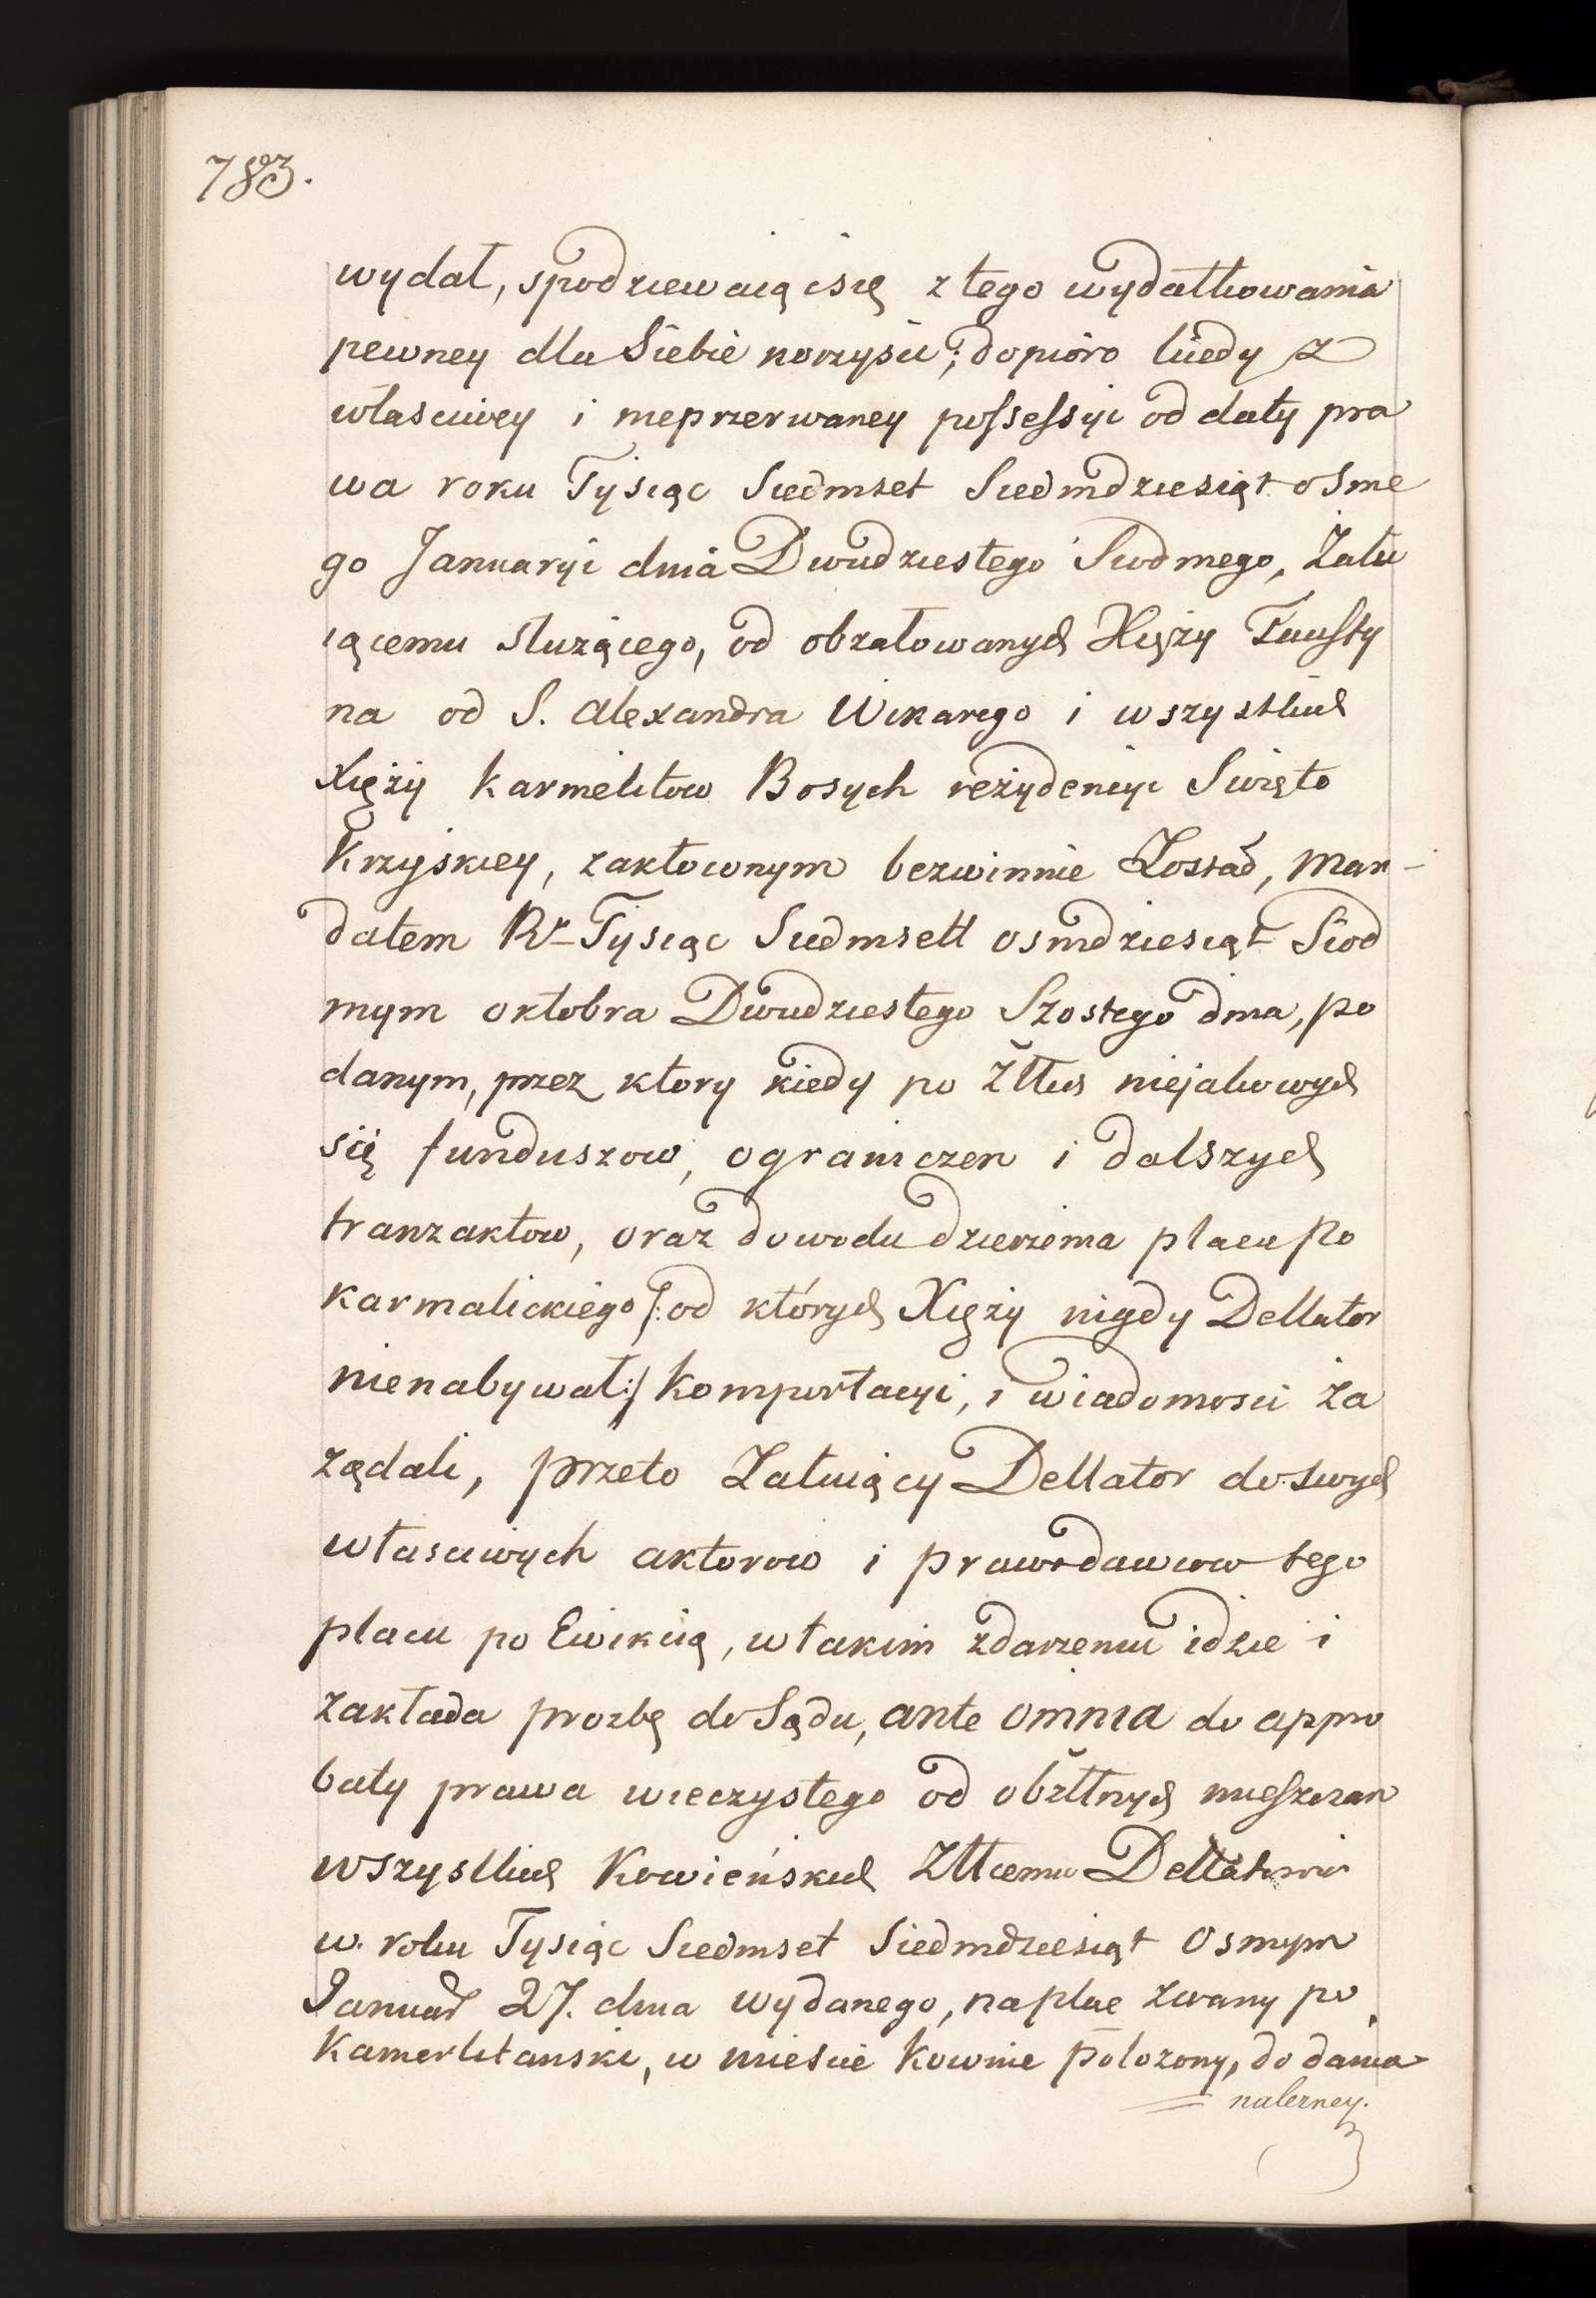 783.
wydał, spodziewaiąc się z tego wydatkowania
pewney dla Siebie korzyści; dopióro kiedy z
własciwey i nieprzerwaney possessyi od daty pra
wa roku Tysiąc Siedmset Siedmdziesiąt osme
go Januaryi dnia Dwudziestego Siodmego, Żału
iącemu służącego, od obżałowanych Xięży Fausty
na od S. Alexandra Wikarego i wszystkich
Xięży Karmelitow Bosych rezydencyi Swięto
Krzyskiey, zakłoconym bezwinnie Został, Man-
datem Rr Tysiąc Siedmsett osmdziesiąt Siod
mym oktobra Dwudziestego Szostego dnia, po
danym, przez ktory kiedy po Żłłus niejakowych
się funduszow, ograniczen i dalszych
tranzaktow, oraz dowodu dzierżenia placu Po
karmalickiego /: od których Xięży nigdy Dellator
nienabywał :/ Komportacyi, i wiadomosci Za
żądali, przeto Żałuiący Dellator do swych
własciwych aktorow i prawodawcow tego
placu po Ewikcią, w takim zdarzeniu idzie i
zakłada prozbę do Sądu, ante omnia do appro
baty prawa wieczystego od obżłłnych mieszczan
wszystkich Kowieńskich Żłłcemu Dellatorowi
w roku Tysiąc Siedmset Siedmdziesiąt Osmym
Januar 27. dnia wydanego, na plac zwany po
Kamerlitanski, w miescie Kownie położony, do dania
= należney.